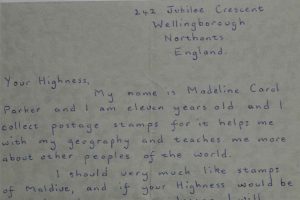 242 Jubilee Crescent
Wellingborough
Northants
England.
Your Highness,
My name is Madeline Carol
Parker and I am eleven years old and I
collect postage stamps for it helps me
with my geography and teaches me
more about other peoples of the world.
I should very much like stamps
of Maldive, and if your Highness would be
I will